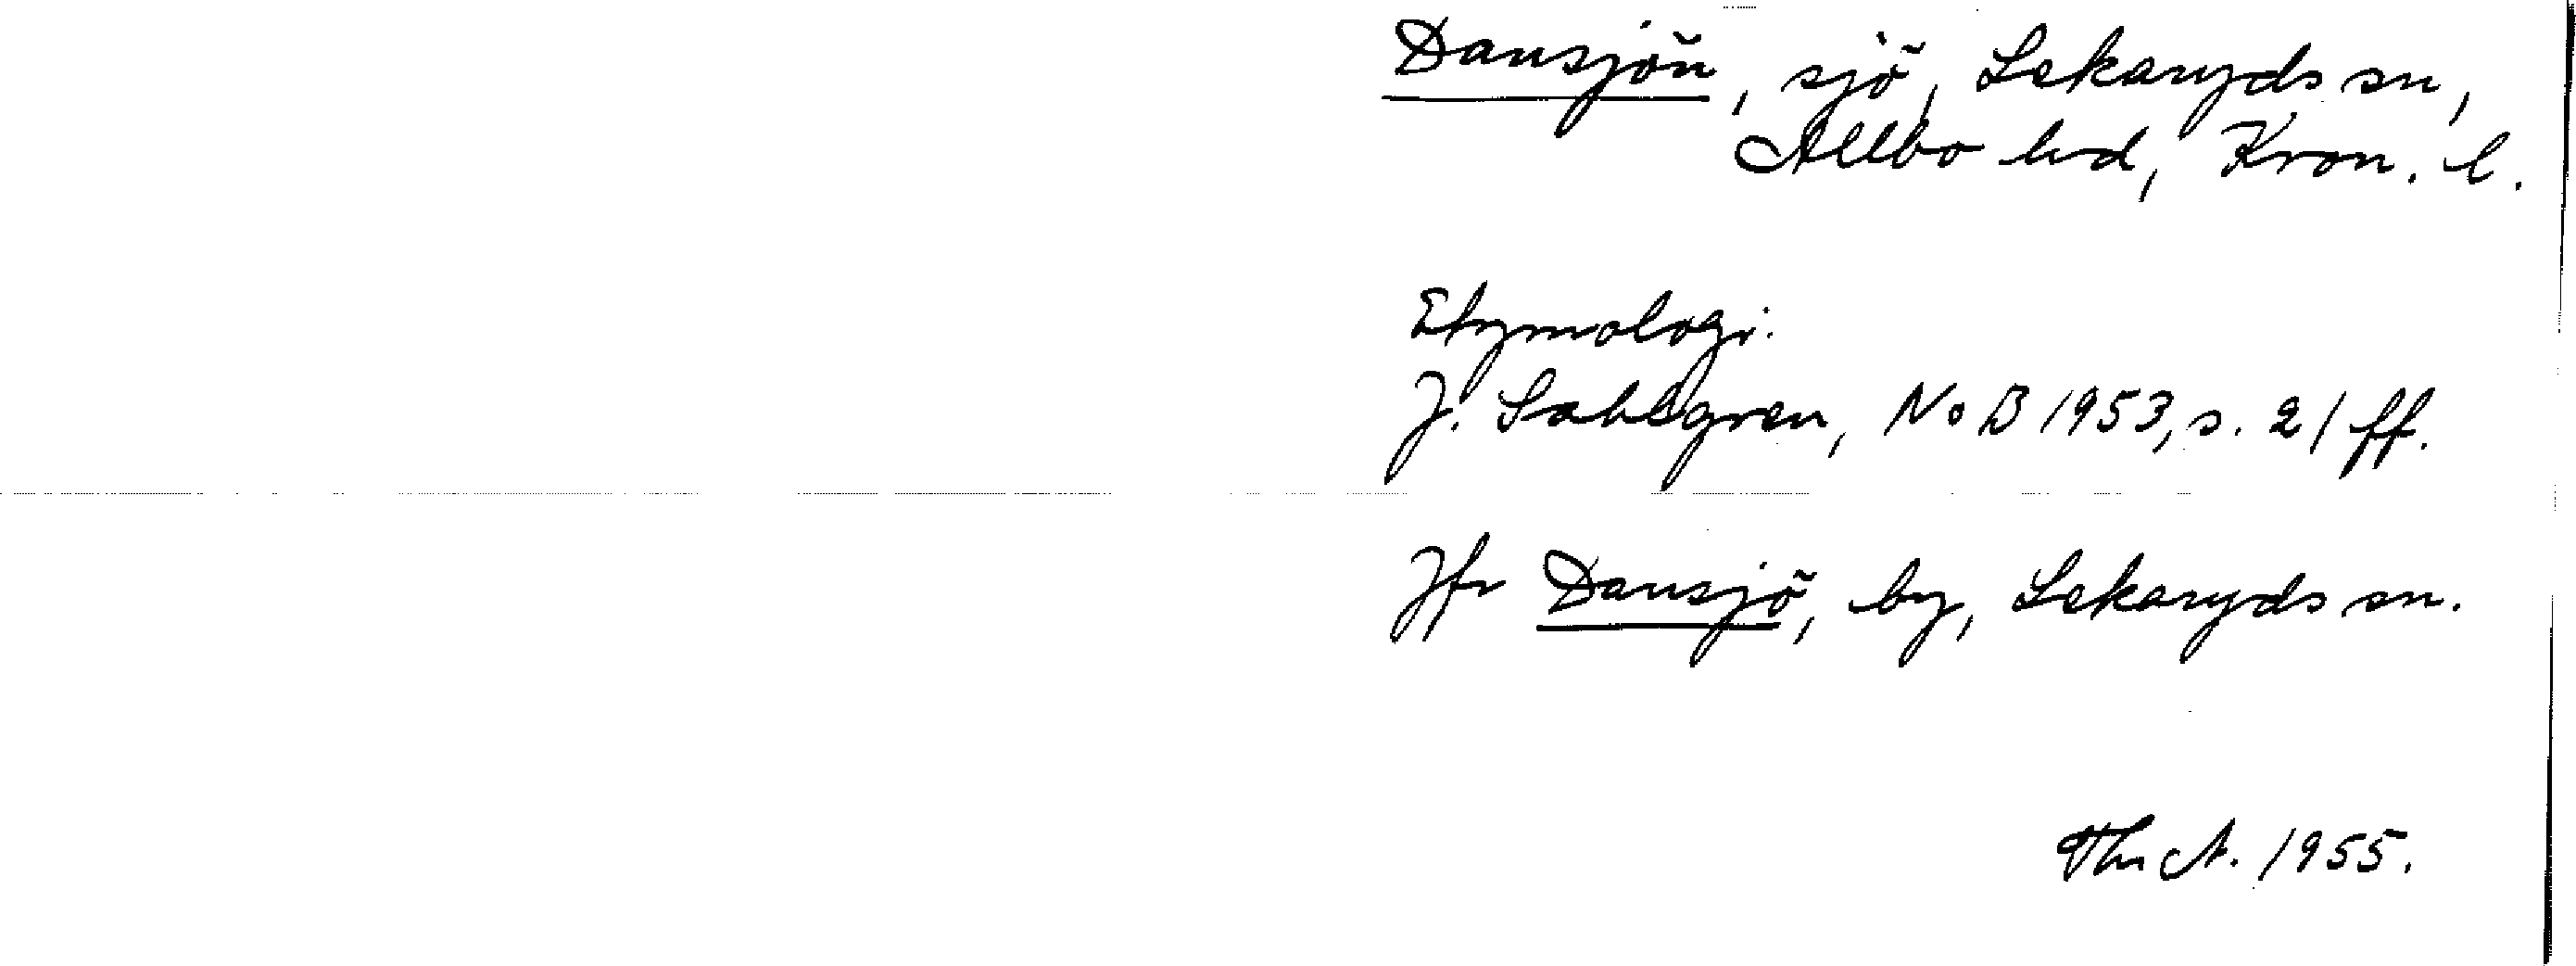 Dansjön, sjö, Lekaryds sn,
Allbo hd, Kron. l.
Etymologi.
J. Sahlgren, NoB 1953, s. 21 ff.
Jfr Dansjö, by, Lekaryds sn.
Thn A. 1955.